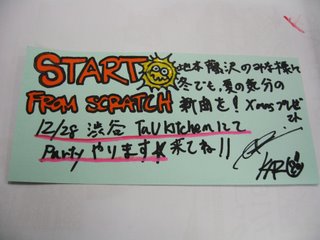 START
FROM SCRATCH
地元藤沢の海を想って
冬でも、夏の気分の
新曲を! X'masプレゼント
12/28 渋谷 TaU Kitchenにて
Partyやります!! 来てね!!